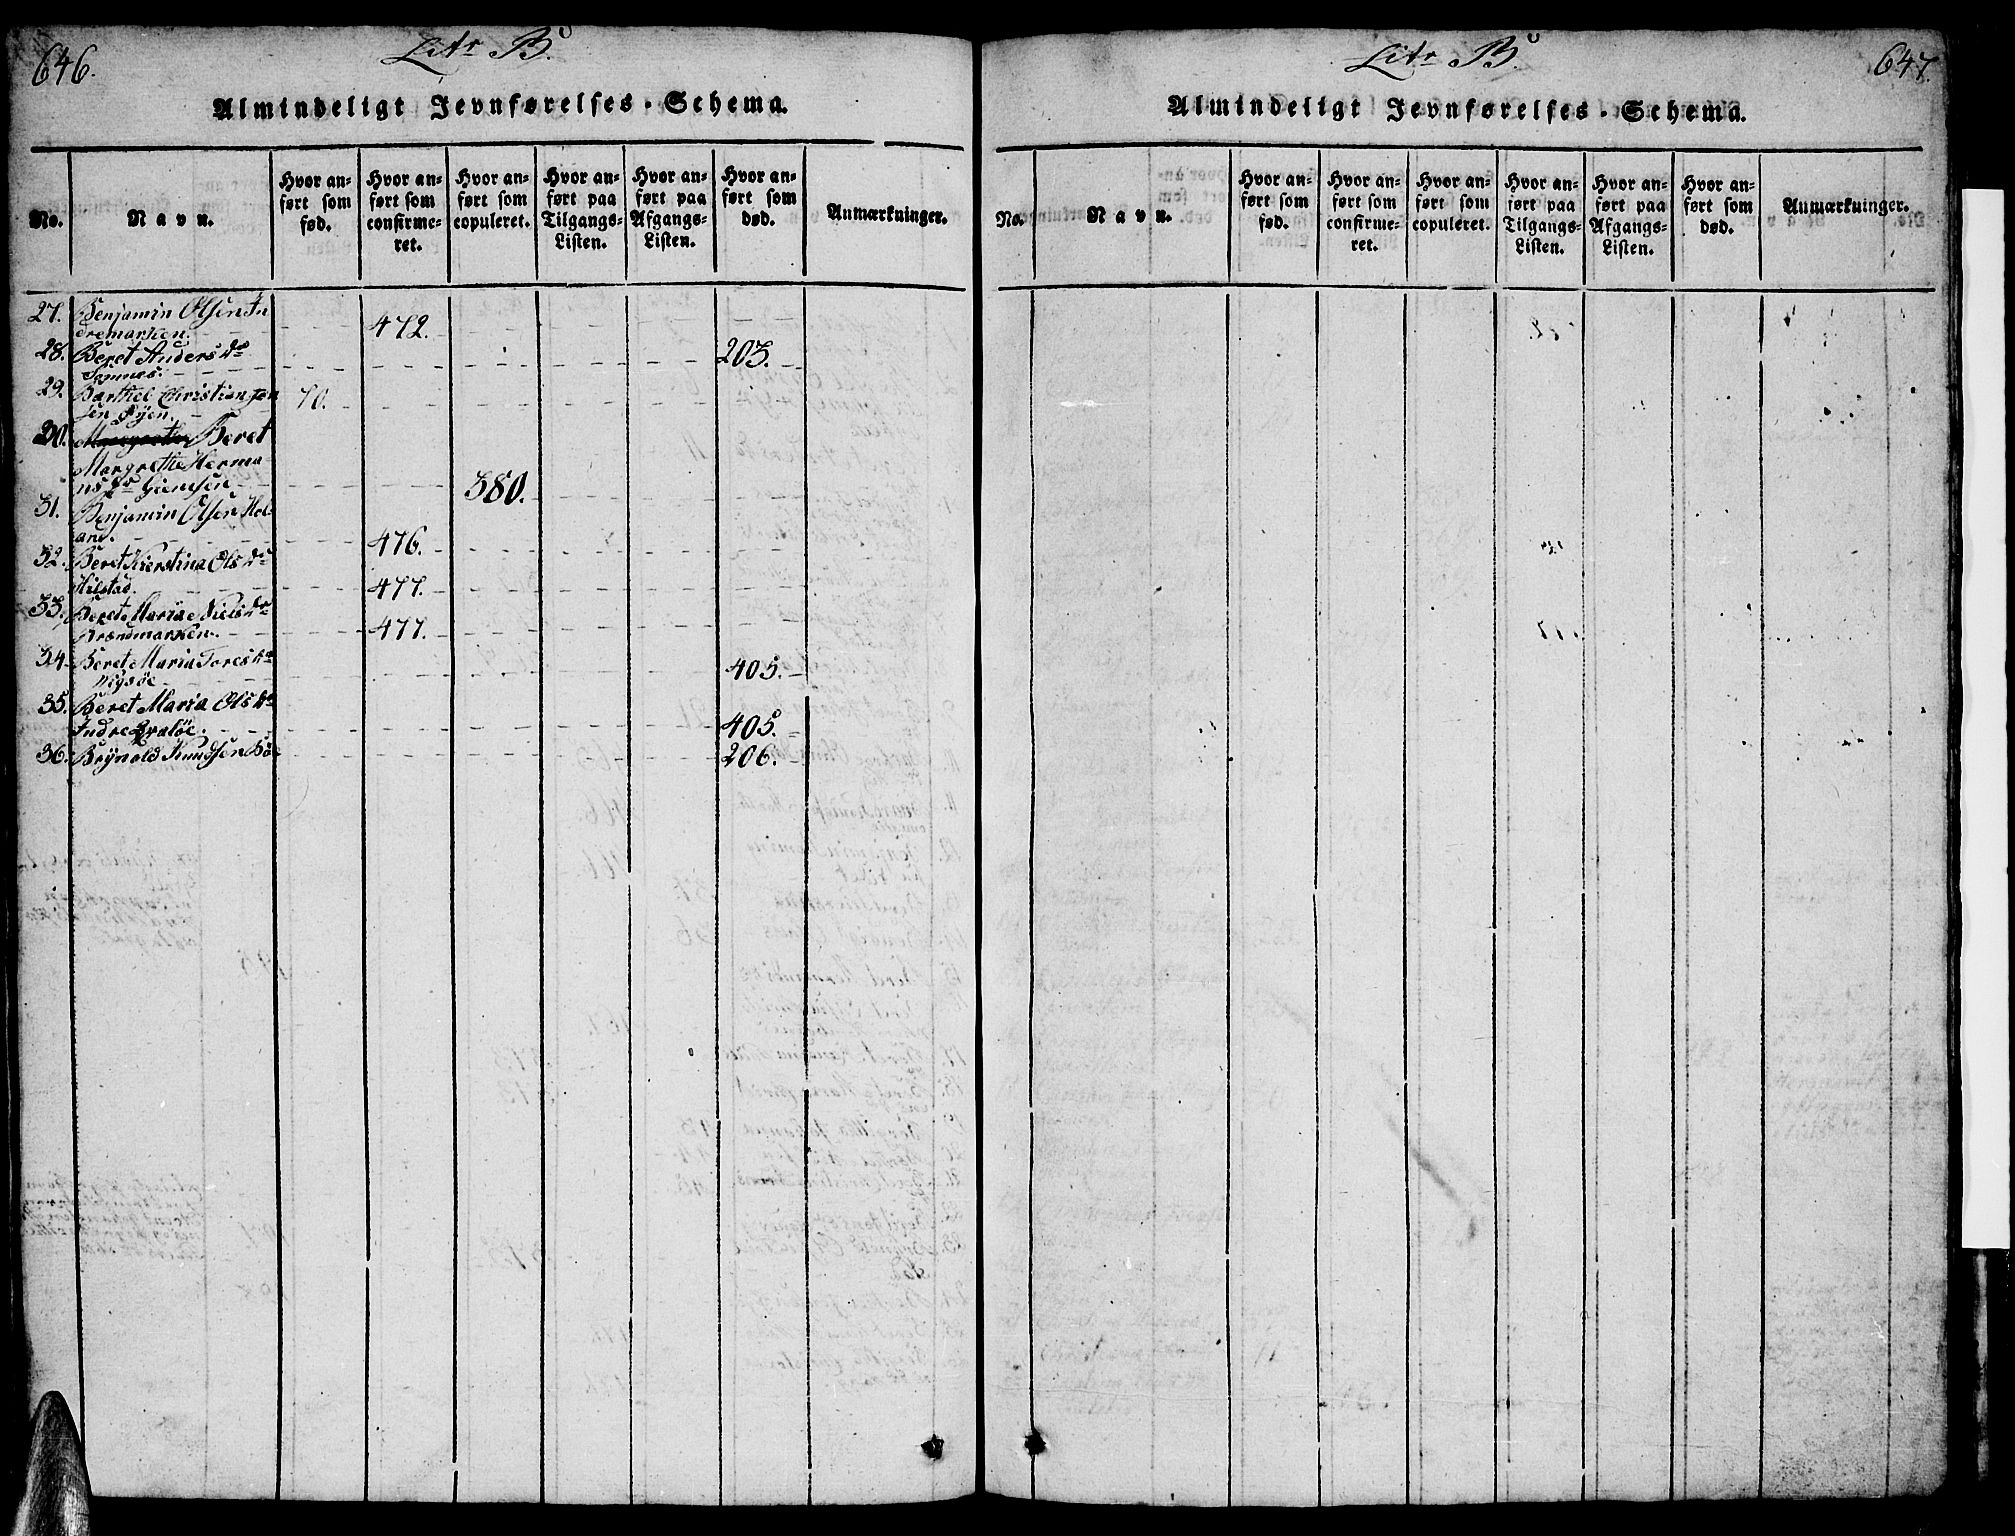 646.
Litr B.
Almindeligt Jevnførelses-Schema.
No.
Navn.
Hvor an-
ført som
fød.
Hvor an-
ført som
confirme-
ret.
Hvor an-
ført som
copuleret.
Hvor an-
ført paa
Tilgangs-
Listen.
Hvor an-
ført paa
Afgangs-
Listen.
Hvor an-
ført som
død.
Anmærkninger.
27. Benjamin Olsen In
dremarken. 472.
28. Beret Anders Dr
Semnes. 203.
29. Barthel Christian Jen
sen Øyen. 70.
30. Beret
Margrethe Herma-
ns Dr 380.
31. Benjamin Olsen Hel-
and. 476.
32. Beret Kierstina Ols Dr
Hilstad. 477.
33. Beret Maria Niels Dr
Brandmarken. 477.
34. Beret Maria Tores Dr
Nysöe 405.
35. Beret Maria Ols Dr
Indre 405.
36. Brynold Knudsen Böe 206.
647.
Litr B.
Almindeligt Jevnførelses-Schema.
No.
Navn.
Hvor an-
ført som
fød.
Hvor an-
ført som
confirme-
ret.
Hvor an-
ført som
copuleret.
Hvor an-
ført paa
Tilgangs-
Listen.
Hvor an-
ført paa
Afgangs-
Listen.
Hvor an-
ført som
død.
Anmærkninger.